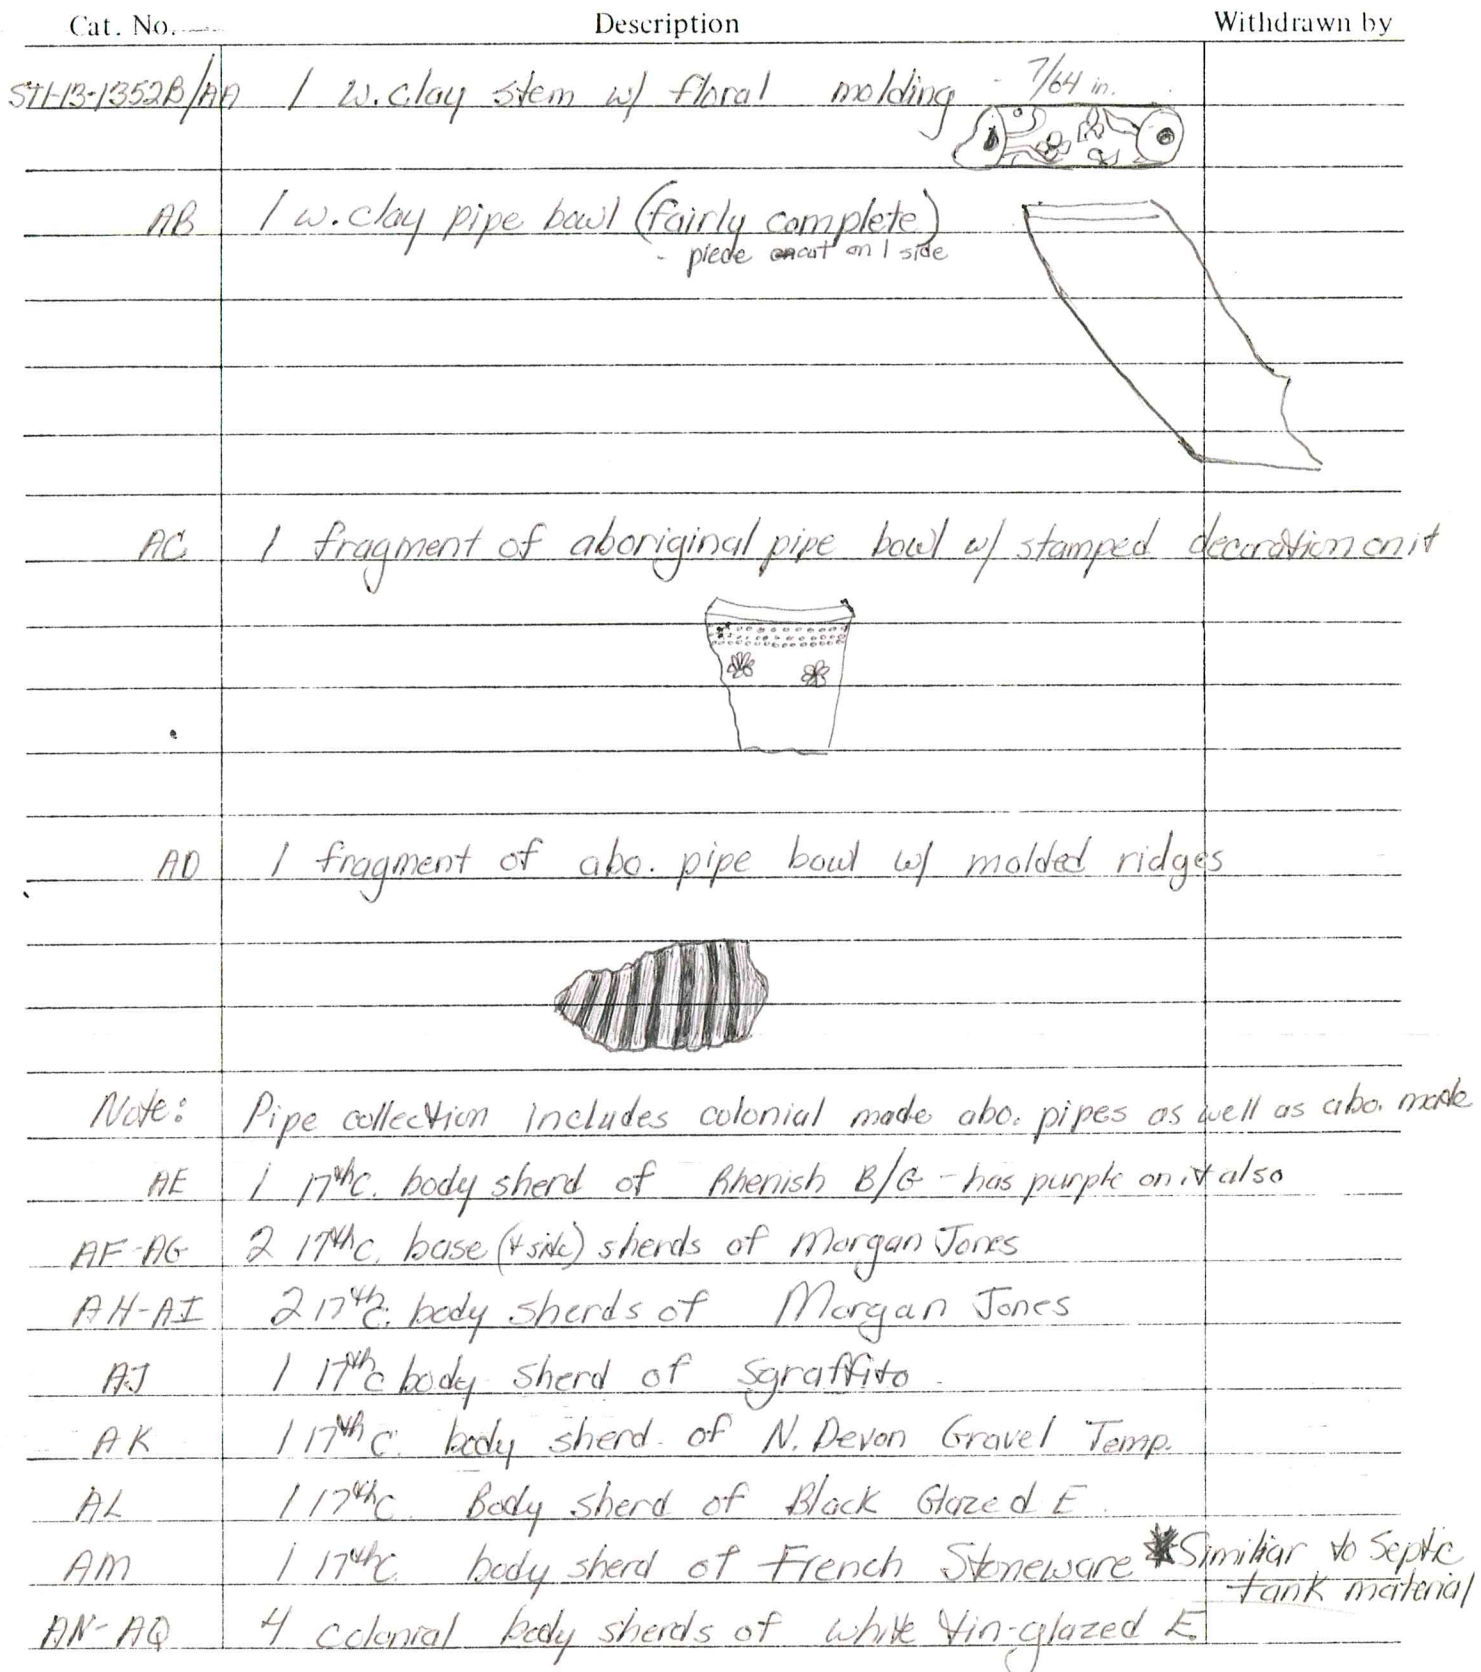 Cat. No. Description Withdrawn by
ST1-13-1352B/AA 1 w. clay stem w/ floral molding - 7/64 in.
AB 1 w. clay pipe bowl (fairly complete)
- piece cut on 1 side
AC 1 fragment of aboriginal pipe bowl w/ stamped decoration on it
AD 1 fragment of abo. pipe bowl w/ molded ridges
Note: Pipe collection includes colonial made abo. pipes as well as abo. made
AE 1 17thC. body sherd of Rhenish B/G - has purple on it also
AF-AG 2 17thC. base (+ side) sherds of Morgan Jones
AH-AI 2 17thC. body sherds of Morgan Jones
AJ 1 17thC body sherd of Sgraffito
AK 1 17thC. body sherd of N. Devon Gravel Temp.
AL 1 17thC. Body sherd of Black Glazed E.
AM 1 17thC. body sherd of French Stoneware * Similiar to Septic
tank material
AN-AQ 4 colonial body sherds of white tin-glazed E.